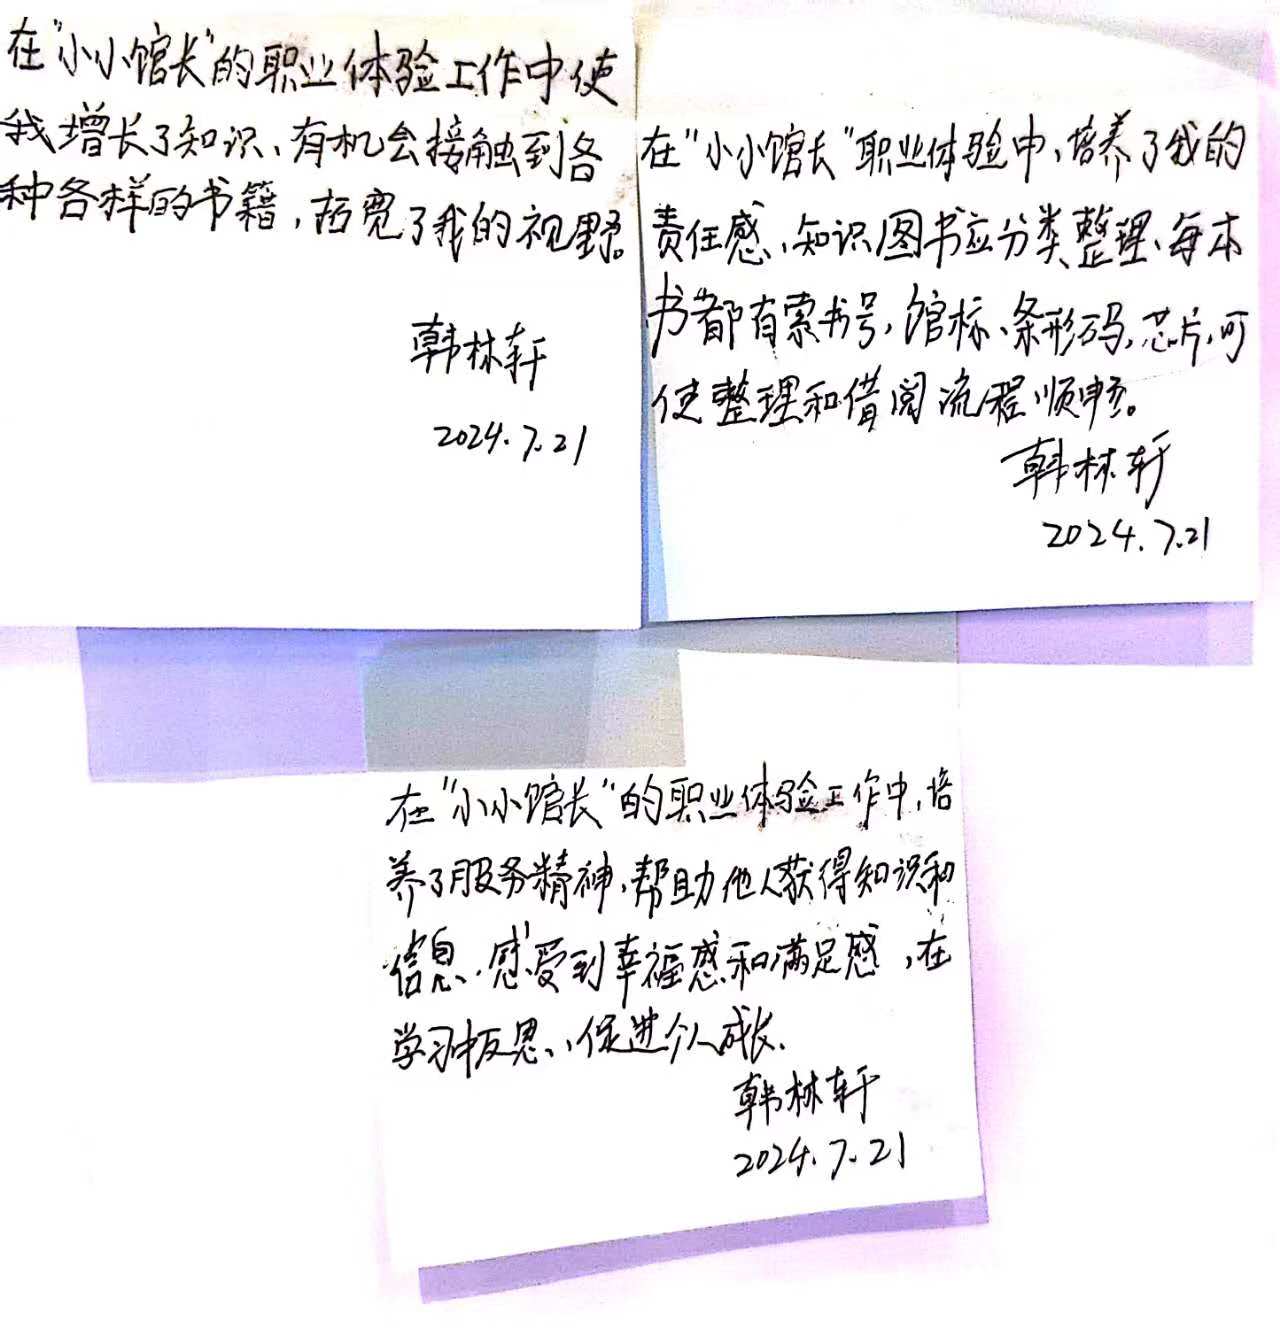 在"小小馆长"的职业体验工作中使
我增长了知识、有机会接触到各
种各样的书籍，拓宽了我的视野。
韩林轩
2024.7.21
在"小小馆长"职业体验中，培养了我的
责任感、知识图书应分类整理、每本
书都有索书号，馆标、条形码，芯片，可
使整理和借阅流程顺畅。
韩林轩
2024.7.21
在"小小馆长"的职业体验工作中，培
养了服务精神，帮助他人获得知识和
信息、感受到幸福感和满足感，在
学习中反思、，促进个人成长、
韩林轩
2024.7.21